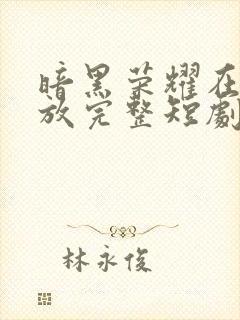 暗黑荣耀在
放完整短劇
林永俊